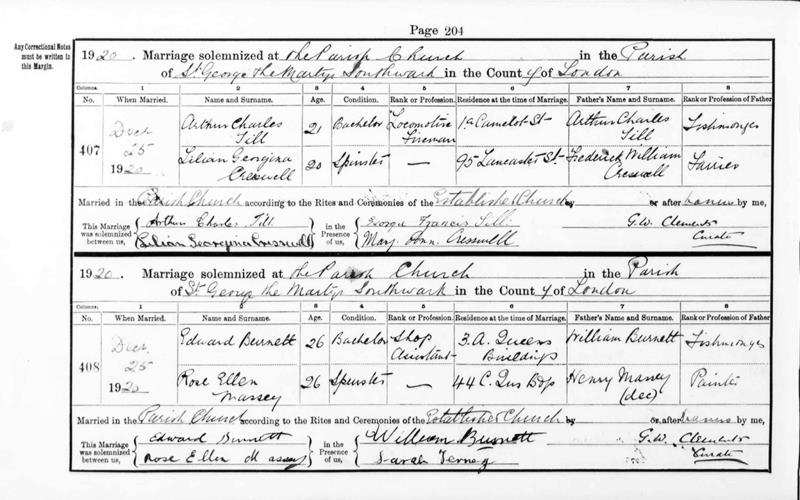 Page 204
Any Correctional Notes
must be written in
this Margin.
1920. Marriage solemnized at the Parish Church in the Parish
of St. George the Martyr Southwark in the County of London
Columns. 1 2 3 4 5 6 7 8
No. When Married. Name and Surname. Age. Condition. Rank or Profession. Residence at the time of Marriage. Father's Name and Surname. Rank or Profession of Father
407 Decr 25 1920 Arthur Charles Till 21 Bachelor Locomotive Fireman 1a Camelot St Arthur Charles Till Fishmonger
Lilian Georgina Cresswell 20 Spinster — 95 Lancaster St. Frederick William Cresswell Farrier
Married in the Parish Church according to the Rites and Ceremonies of the Established Church by or after banns by me,
This Marriage was solemnized between us, Arthur Charles Till Lilian Georgina Cresswell in the Presence of us, George Francis Till Mary Ann Cresswell G.W. Clements Curate
1920. Marriage solemnized at the Parish Church in the Parish
of St. George the Martyr Southwark in the County of London
Columns. 1 2 3 4 5 6 7 8
No. When Married. Name and Surname. Age. Condition. Rank or Profession. Residence at the time of Marriage. Father's Name and Surname. Rank or Profession of Father
408 Decr 25 1920 Edward Burnett 26 Bachelor Shop Assistant 3.A. Queens Buildings William Burnett Fishmonger
Rose Ellen Massey 26 Spinster — 44 C. Qns Bdgs Henry Massey (dec) Painter
Married in the Parish Church according to the Rites and Ceremonies of the Established Church by or after banns by me,
This Marriage was solemnized between us, Edward Burnett Rose Ellen Massey in the Presence of us, William Burnett Sarah G.W. Clements Curate